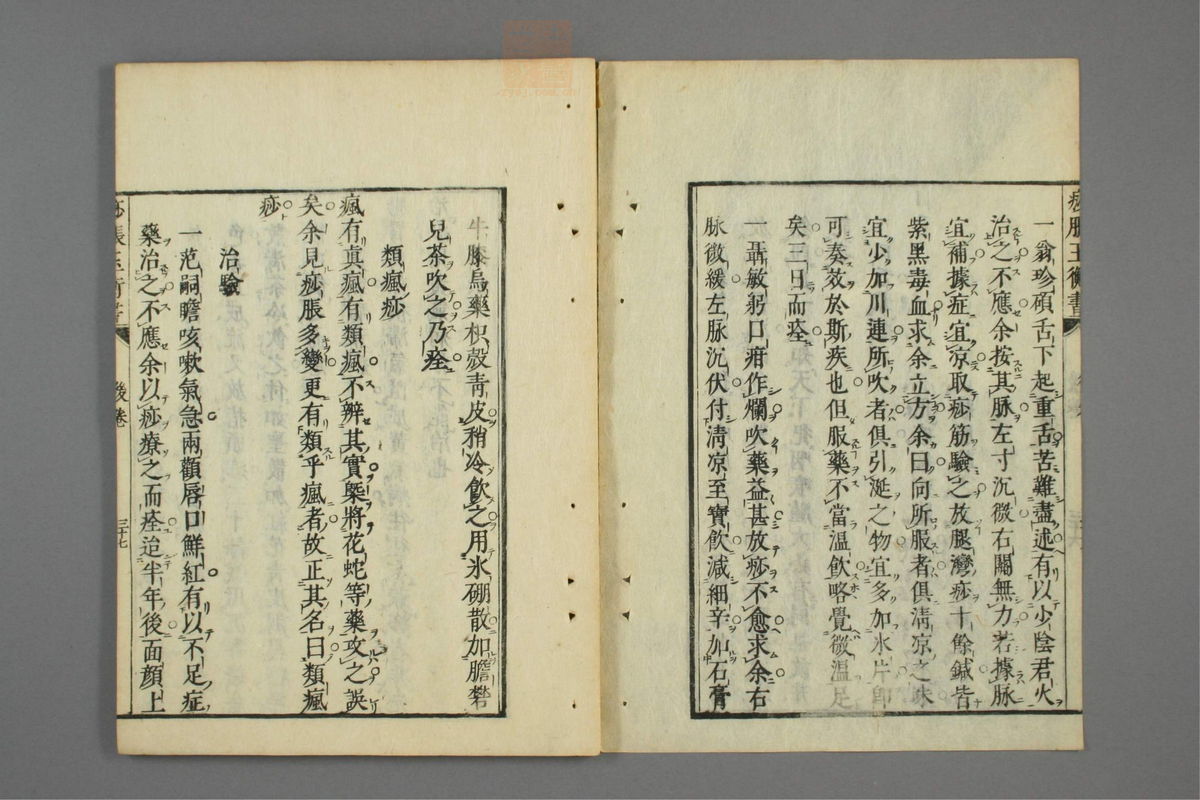 一翁珍碩舌下起重舌苦難盡述有以少陰君火
治之不應余按其脉左寸沉微右關無力若據脉
宜補據症宜凉取痧筋驗之放腿灣痧十餘鍼皆
紫黑毒血求余立方余曰向所服者俱清凉之味
宜少加川連所吹者俱引涎之物宜多加氷片卽
可奏效於斯疾也但服藥不當温飲略覺微温足
矣三日而痊
一聶敏躬口疳作爛吹藥益甚放痧不愈求余右
脉微緩左脉沉伏付清凉至寶飲減細辛加石膏
牛膝烏藥枳殼靑皮稍冷飲之用氷硼散加膽礬
兒茶吹之乃痊
類瘋痧
瘋有真瘋有類瘋不辨其實槩將花蛇等藥攻之誤
矣余見痧脹多變更有類乎瘋者故正其名曰類瘋
痧
治驗
一范嗣瞻咳嗽氣急兩顴唇口鮮紅有以不足症
藥治之不應余以痧療之而痊迨半年後面顔上
後卷
三十七